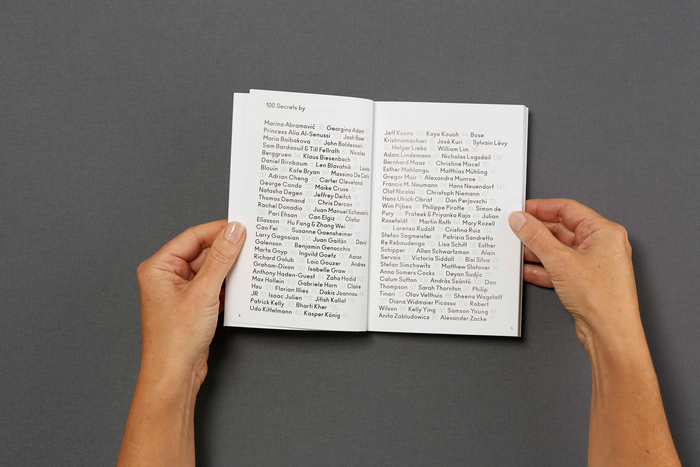 100 Secrets by
Marina Abramović Georgina Adam
Princess Alia Al-Senussi Josh Baer
Maria Baibakova John Baldessari
Sam Bardaouil & Till Fellrath Nicolas
Berggruen Klaus Biesenbach
Daniel Birnbaum Len Blavatnik
Blouin Kate Bryan Massimo De Carlo
Adrian Cheng Carter Cleveland
George Condo Maike Cruse
Natasha Degen Jeffrey Deitch
Thomas Demand Chris Dercon
Rachel Donadio Juan Manuel Echavarría
Pari Ehsan Can Elgiz Ólafur
Eliasson Hu Fang & Zhang Wei
Cao Fei Susanne Gaensheimer
Larry Gagosian Juan Gaitán David
Galenson Benjamin Genocchio
Marta Gnyp Ingvild Goetz Aaron
Richard Golub Loic Gouzer Andrew
Graham-Dixon Isabelle Graw
Anthony Haden-Guest Zaha Hadid
Max Hollein Gabriele Horn Claire
Hsu Florian Illies Dakis Joannou
JR Isaac Julien Jitish Kallat
Patrick Kelly Bharti Kher
Udo Kittelmann Kasper König
Jeff Koons Koyo Kouoh Bose
Krishnamachari José Kuri Sylvain Lévy
Holger Liebs William Lim
Adam Lindemann Nicholas Logsdail
Bernhard Maaz Christine Macel
Esther Mahlangu Matthias Mühling
Gregor Muir Alexandra Munroe
Francis M. Naumann Hans Neuendorf
Olaf Nicolai Christoph Niemann
Hans Ulrich Obrist Dan Perjovschi
Wim Pijbes Philippe Pirotte Simon de
Pury Prateek & Priyanka Raja Julian
Rosefeldt Martin Roth Mary Rozell
Lorenzo Rudolf Cristina Ruiz
Stefan Sagmeister Patrizia Sandretto
Re Rebaudengo Lisa Schiff Esther
Schipper Allan Schwartzman Alain
Servais Victoria Siddall Bisi Silva
Stefan Simchowitz Matthew Slotover
Anna Somers Cocks Deyan Sudjic
Calum Sutton András Szántó Don
Thompson Sarah Thornton Philip
Tinari Olav Velthuis Sheena Wagstaff
Diana Widmaier Picasso Robert
Wilson Kelly Ying Samson Young
Anita Zabludowicz Alexander Zacke